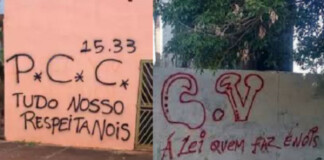 15.33
P.C.C.
TUDO NOSSO
RESPEITA NOIS
C.V
A LEI QUEM FAZ E NOIS